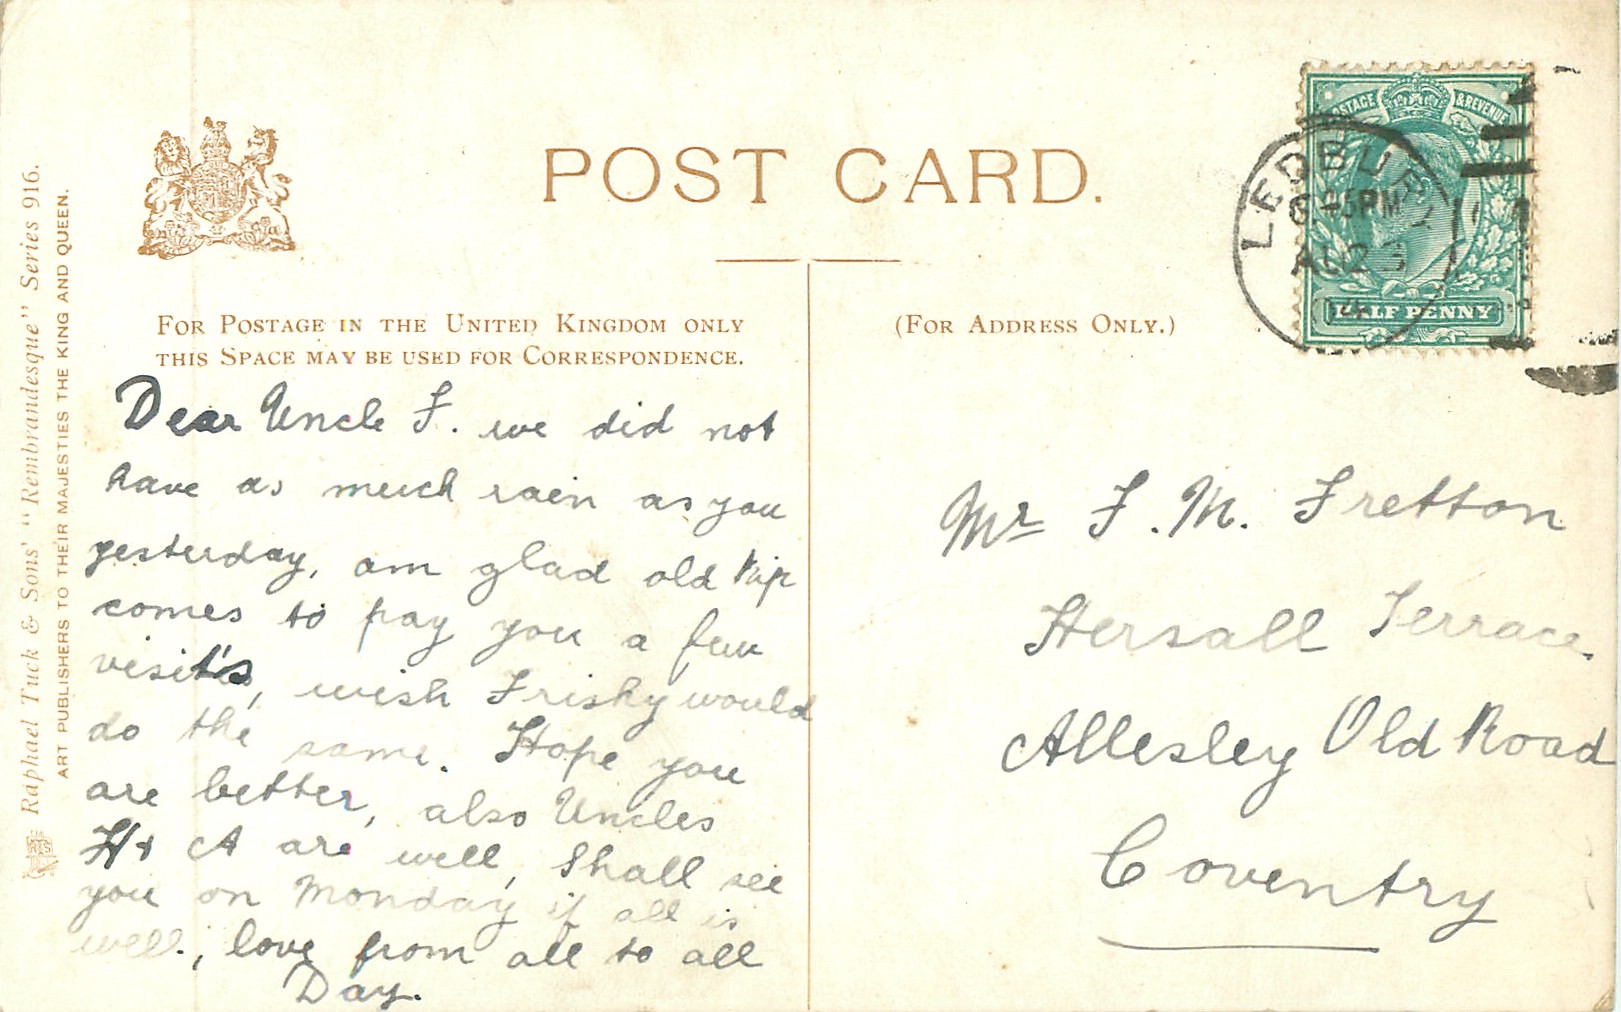 Raphael Tuck & Sons' "Rembrandesque" Series 916.
ART PUBLISHERS TO THEIR MAJESTIES THE KING AND QUEEN.
POST CARD.
FOR POSTAGE IN THE UNITED KINGDOM ONLY
THIS SPACE MAY BE USED FOR CORRESPONDENCE.
Dear Uncle F. we did not
have as much rain as you
yesterday, am glad old Kip
comes to pay you a few
visit's, wish Frisky would
do the same. Hope you
are better, also Uncles
H & A are well, Shall see
you on Monday if all is
well., love from all to all
Day.
(FOR ADDRESS ONLY.)
POSTAGE & REVENUE
HALF PENNY
LEDBURY
6-45PM
AU 23
04
Mr F. M. Fretton
Hersall Terrace,
Allesley Old Road
Coventry